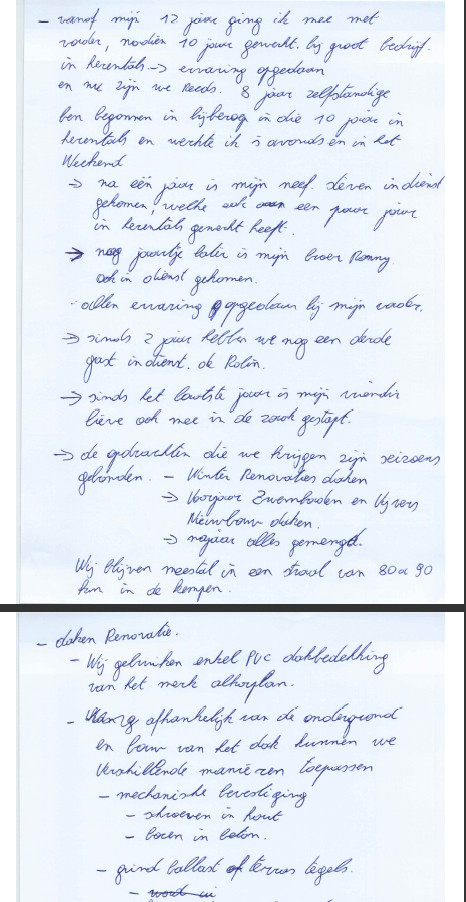 - vanaf mijn 12 jaar ging ik mee met
vader, nadien 10 jaar gewerkt bij groot bedrijf.
in herentals → ervaring opgedaan
en nu zijn we Reeds. 8 jaar zelfstandige
ben begonnen in bijberoep in die 10 jaar in
herentals en werkte ik 's avonds en in het
Weekend
→ na één jaar is mijn neef. steven in dienst
gekomen, welke ook een paar jaar
in herentals gewerkt heeft.
→ nog jaartje later is mijn broer Ronny.
ook in dienst gekomen.
- allen ervaring opgedaan bij mijn vader.
→ sinds 2 jaar hebben we nog een derde
gast in dienst. de Robin.
→ sinds het laatste jaar is mijn vriendin
lieve ook mee in de zaak gestapt.
→ de opdrachten die we krijgen zijn seizoens
gebonden. - Winter Renovaties daken
→ Voorjaar Zwembaden en Vijvers
Nieuwbouw daken.
→ najaar alles gemengd.
Wij blijven meestal in een straal van 80 a 90
km in de kempen.
- daken Renovatie.
- Wij gebruiken enkel PVC dakbedekking
van het merk alkorplan.
- afhankelijk van de ondergrond
en bouw van het dak kunnen we
Verschillende manieren toepassen
- mechanische bevestiging
- schroeven in hout
- boren in beton.
- grind ballast of terras tegels.
- word in